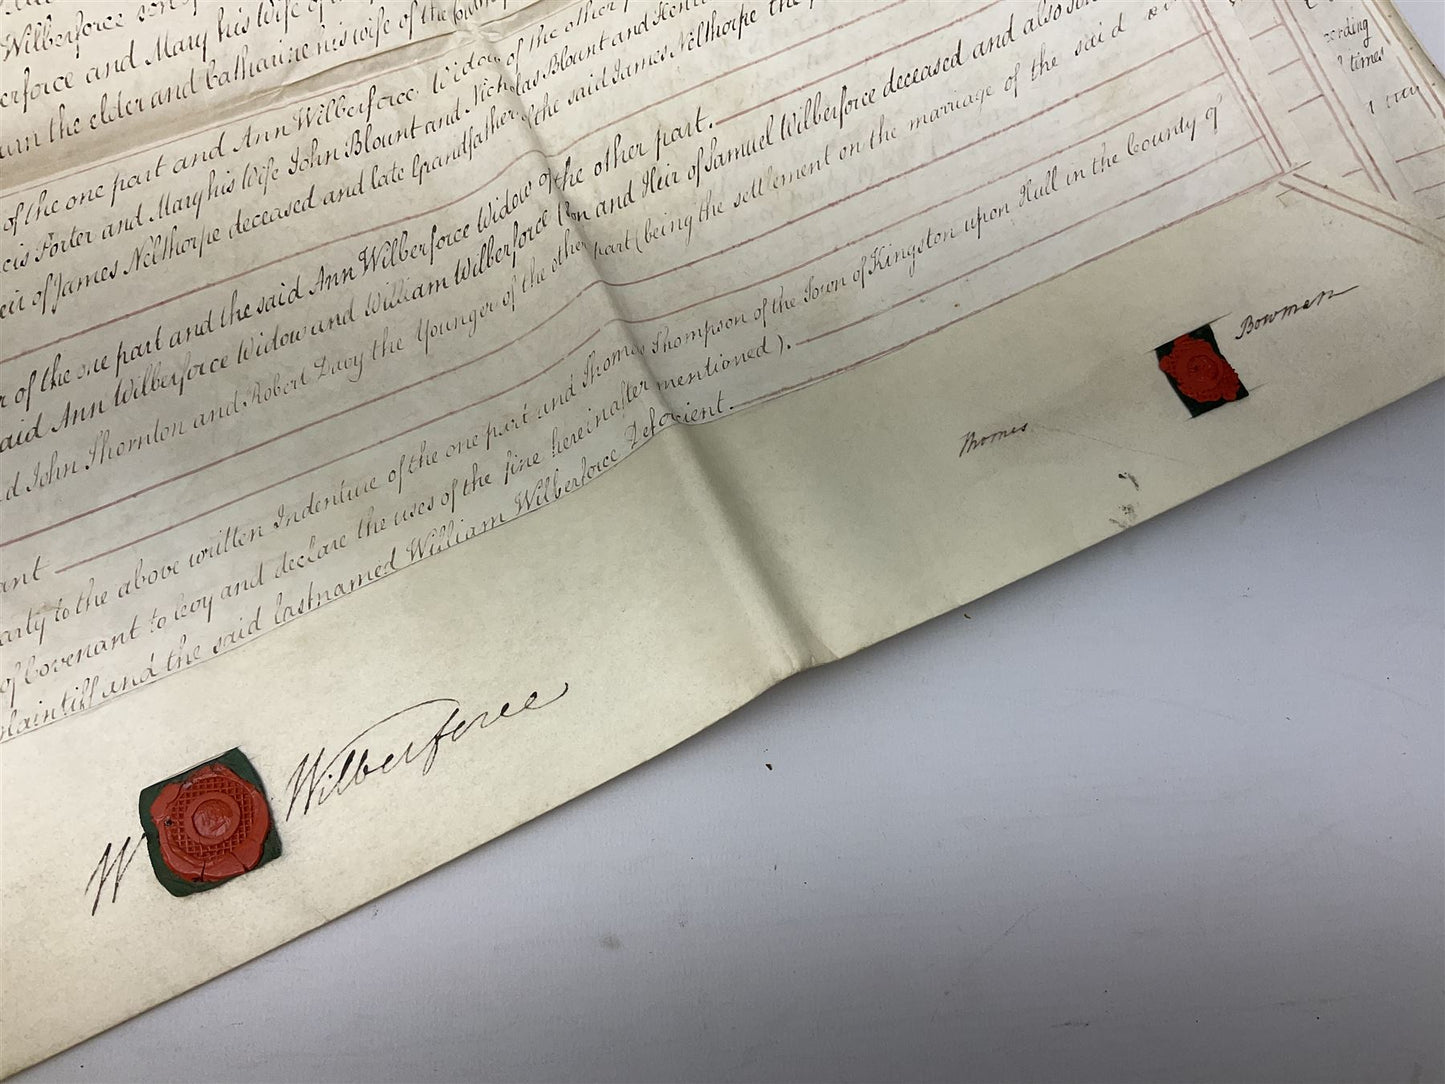 Wilberforce son of
erforce and Mary his Wife of
urn the elder and Catharine his wife of the
of the one part and Ann Wilberforce Widow of the other
cis Porter and Mary his Wife John Blount and Nicholas Blount and
eir of James Nelthorpe deceased and late Grandfather of the said James Nelthorpe the
r of the one part and the said Ann Wilberforce Widow of the other part.
said Ann Wilberforce Widow and William Wilberforce Son and Heir of Samuel Wilberforce deceased and also
d John Thornton and Robert Davy the Younger of the other part (being the settlement on the marriage of the said
ant
arty to the above written Indenture of the one part and Thomas Thompson of the Town of Kingston upon Hull in the County of
of Covenant to levy and declare the uses of the fine hereinafter mentioned).
plaintiff and the said lastnamed William Wilberforce Deforcient.
cording
times
W Wilberforce
Thomas Bowman